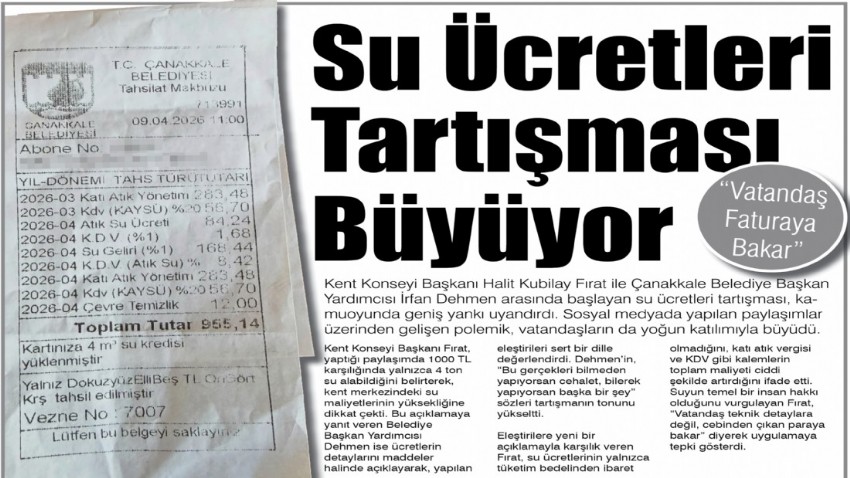 T.C. ÇANAKKALE
BELEDİYESİ
Tahsilat Makbuzu
713991
ÇANAKKALE
BELEDİYESİ
09.04.2026 11:00
Abone No
YIL-DÖNEMİ TAHS TÜRÜ TUTARI
2026-03 Katı Atık Yönetim 283,48
2026-03 Kdv (KAYSÜ) %20 56,70
2026-04 Atık Su Ücreti 84,24
2026-04 K.D.V (%1) 1,68
2026-04 Su Geliri (%1) 168,44
2026-04 K.D.V. (Atık Su) % 8,42
2026-04 Katı Atık Yönetim 283,48
2026-04 Kdv (KAYSÜ) %20 56,70
2026-04 Çevre Temizlik 12,00
Toplam Tutar 955,14
Kartınıza 4 m³ su kredisi
yüklenmiştir
Yalnız DokuzyüzElliBeş TL OnDört
Krş tahsil edilmiştir
Vezne No : 7007
Lütfen bu belgeyi saklayınız
Su Ücretleri
Tartışması
Büyüyor
"Vatandaş
Faturaya
Bakar"
Kent Konseyi Başkanı Halit Kubilay Fırat ile Çanakkale Belediye Başkan
Yardımcısı İrfan Dehmen arasında başlayan su ücretleri tartışması, ka-
muoyunda geniş yankı uyandırdı. Sosyal medyada yapılan paylaşımlar
üzerinden gelişen polemik, vatandaşların da yoğun katılımıyla büyüdü.
Kent Konseyi Başkanı Fırat,
yaptığı paylaşımda 1000 TL
karşılığında yalnızca 4 ton
su alabildiğini belirterek,
kent merkezindeki su
maliyetlerinin yüksekliğine
dikkat çekti. Bu açıklamaya
yanıt veren Belediye
Başkan Yardımcısı
Dehmen ise ücretlerin
detaylarını maddeler
halinde açıklayarak, yapılan
eleştirileri sert bir dille
değerlendirdi. Dehmen'in,
"Bu gerçekleri bilmeden
yapıyorsan cehalet, bilerek
yapıyorsan başka bir şey"
sözleri tartışmanın tonunu
yükseltti.
Eleştirilere yeni bir
açıklamayla karşılık veren
Fırat, su ücretlerinin yalnızca
tüketim bedelinden ibaret
olmadığını, katı atık vergisi
ve KDV gibi kalemlerin
toplam maliyeti ciddi
şekilde artırdığını ifade etti.
Suyun temel bir insan hakkı
olduğunu vurgulayan Fırat,
"Vatandaş teknik detaylara
değil, cebinden çıkan paraya
bakar" diyerek uygulamaya
tepki gösterdi.